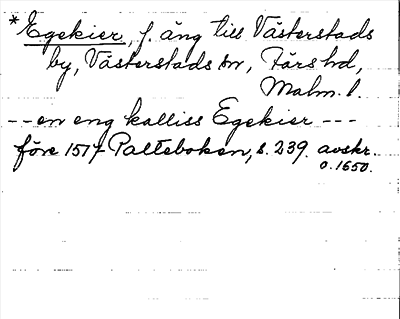 *Egekier, f. äng till Västerstads
by, Västerstads sn, Färs hd,
Malm. l.
-- en eng kalliss Egekier ---
före 1517 Palteboken, s. 239. avskr.
o. 1650.